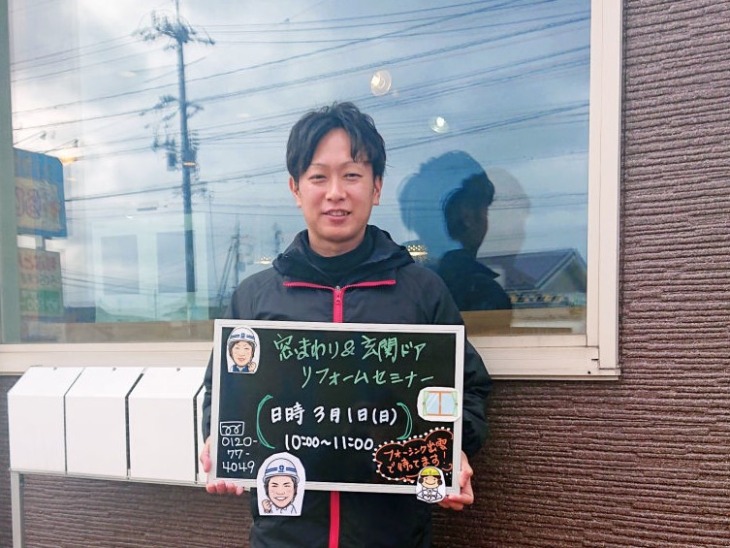 窓まわり&玄関ドア
リフォームセミナー
日時 3月1日(日)
10:00～11:00
0120-
77-
4049
フォーシンク出雲
で待ってます!